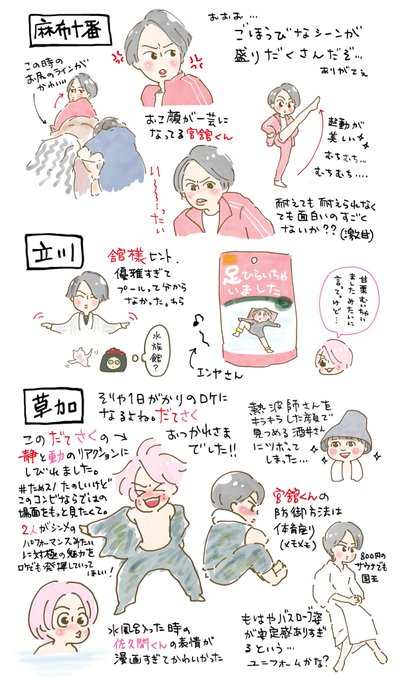 麻布十番
この時の
お尻のラインが
かわいい…
おおお…
ごほうびなシーンが
盛りだくさんだぞ…
ありがてぇ
おこ顔が一芸に
なってる宮舘くん
い～～…ったい
起動が
美しい
むちっ…
むちむち….
耐えても耐えられなく
ても面白いのすごく
ないか??(激甘)
立川
舘様ヒント、
優雅すぎて
プール。って分から
なかった。わら
水族館?
足ひらいちゃ
いました
エンヤさん
甘栗むいちゃい
ました みたいに
言って。けど…
草加
そりゃ1日がかりのロケに
なるよね。だてさく
おつかれさま
でした!!
このだてさくの
静と動のリアクションに
しびれました。
#ためスノ たのしいけど
このコンビならではの
場面をもっと見たくて。
2人がシンメの
パフォーマンスみたい
に対極の魅力を
ロケでも発揮していって
ほしい!
熱波師さんを
キラキラした顔で
見つめる酒井さん
にツボって
しまった…
宮舘くんの
防御方法は
体育座り
(メモメモ)
800円の
サウナでも
国王
水風呂入った時の
佐久間くんの表情が
漫画すぎてかわいかった
もはやバスローブ姿
が安定感ありすぎ
るという…
ユニフォームかな?